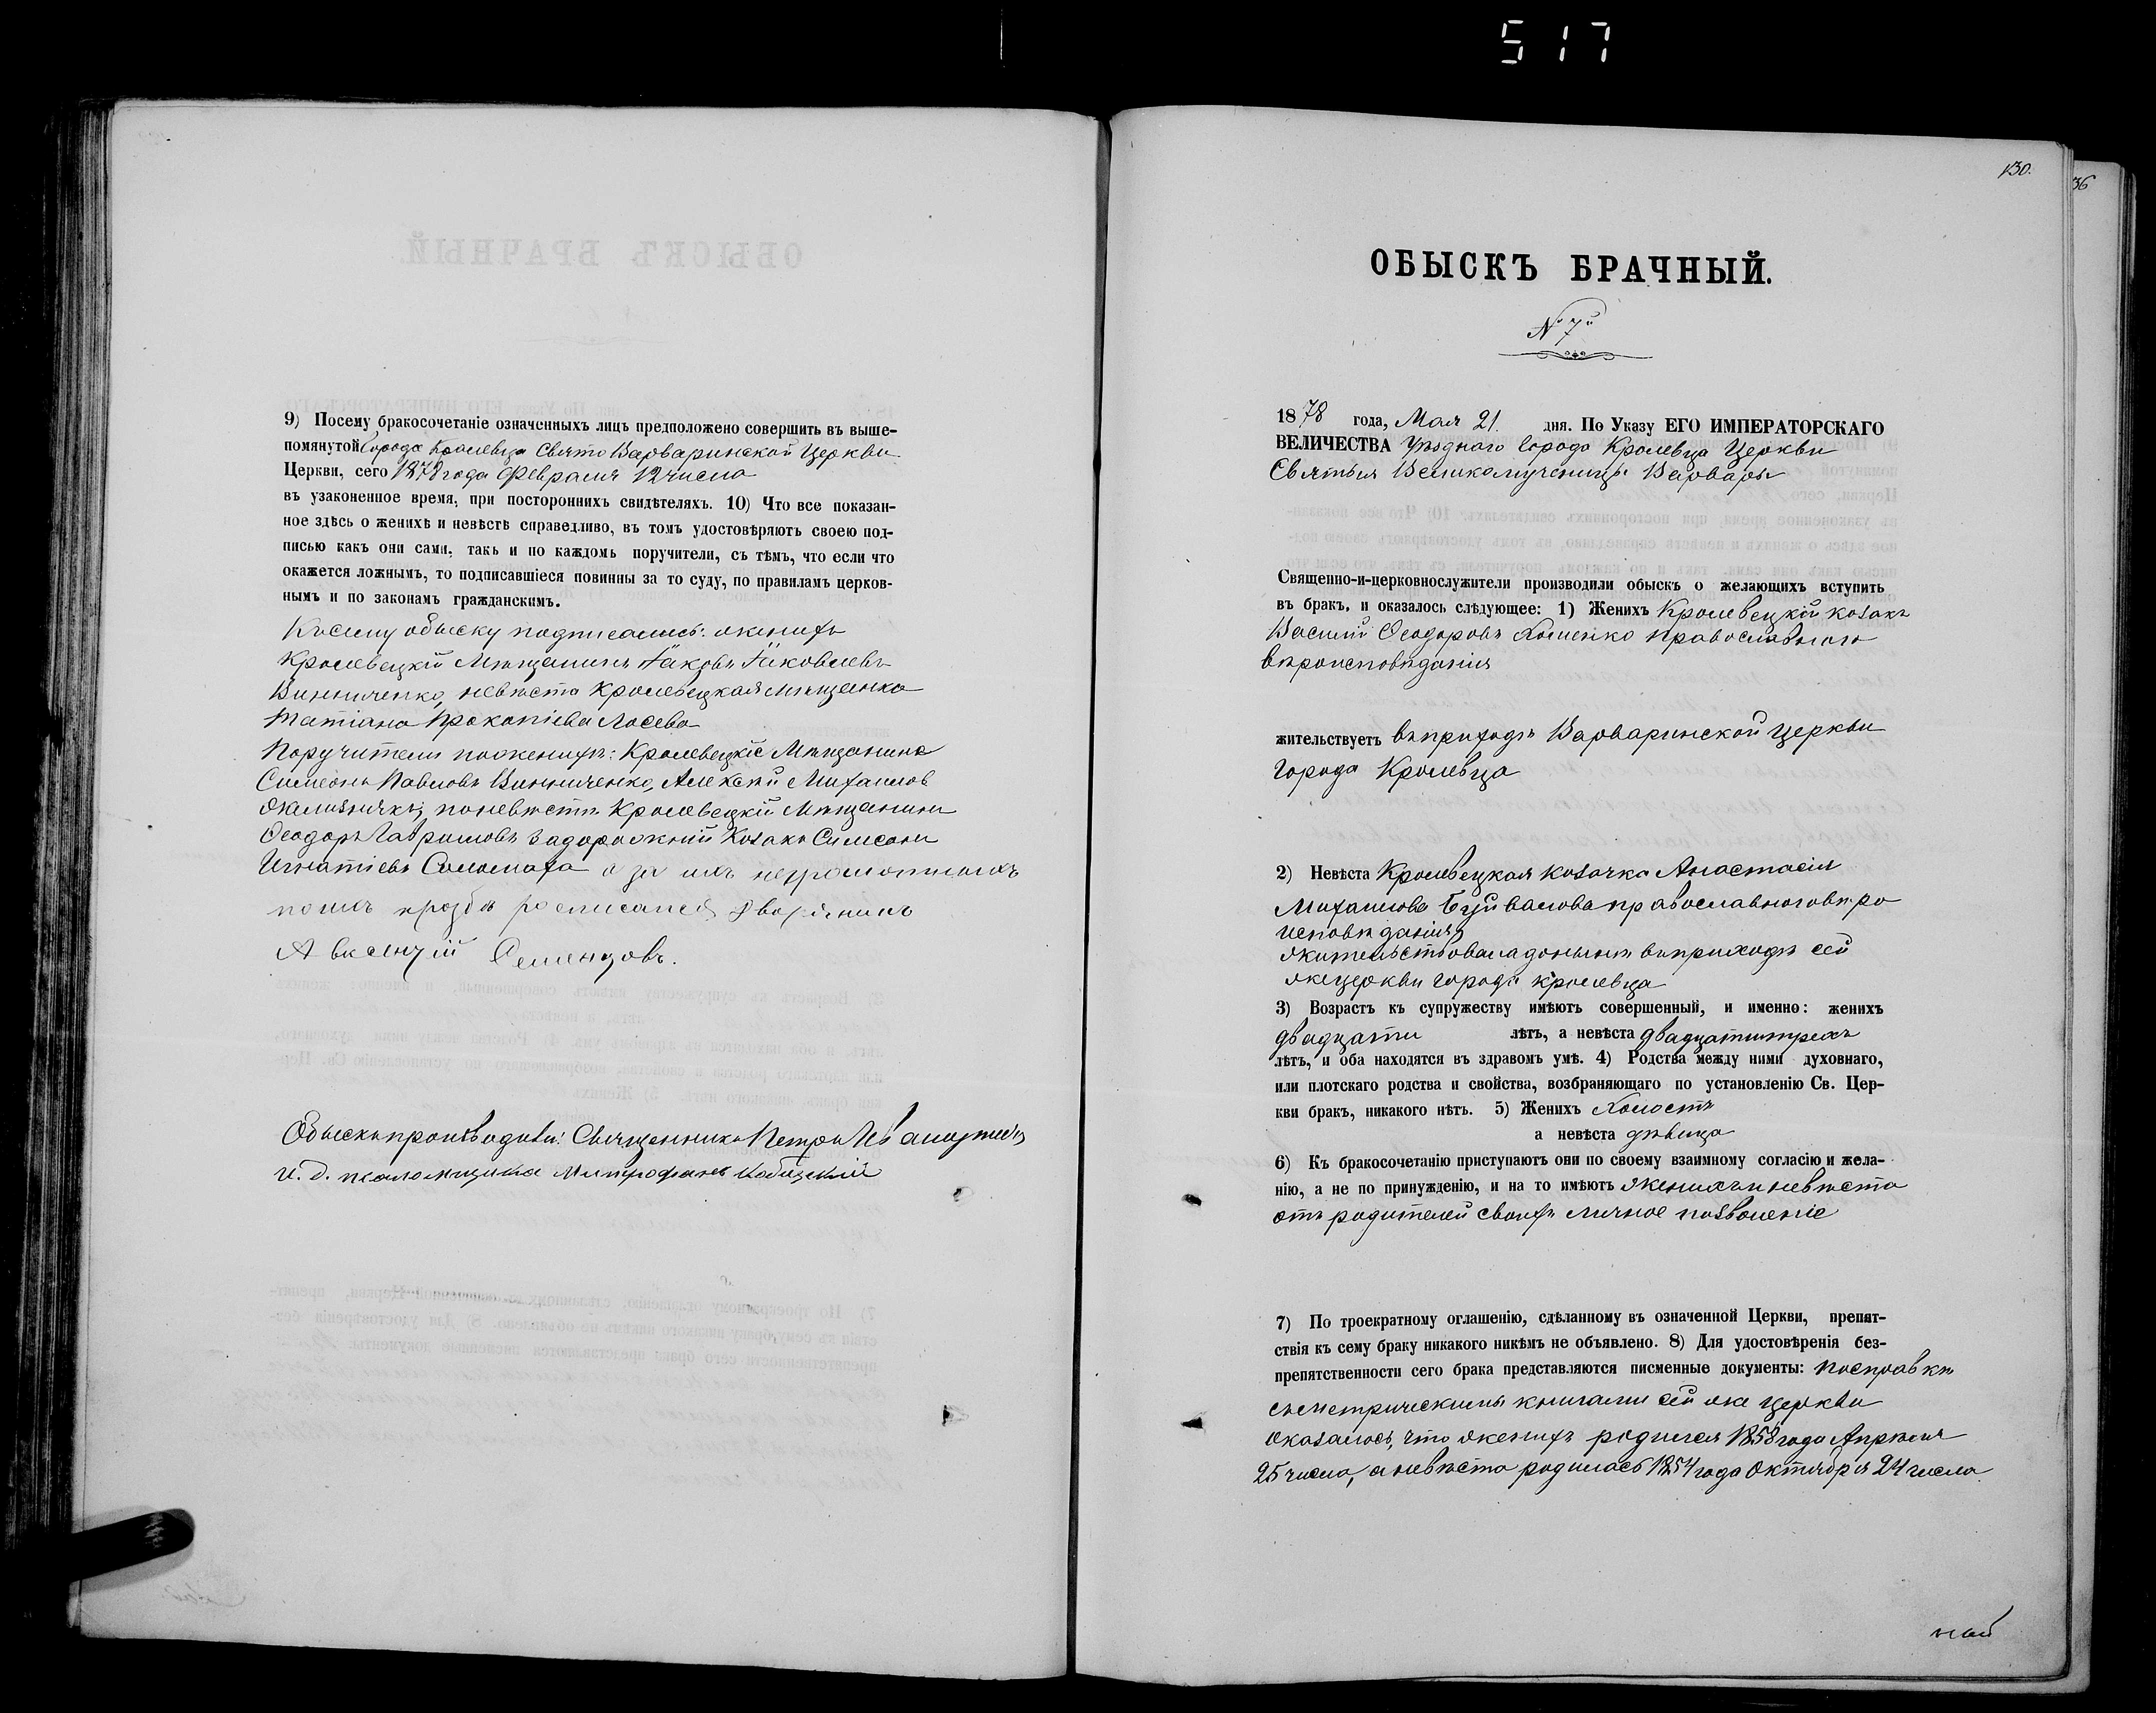 517
9) Посему бракосочетаніе означенныхъ лицъ предположено совершить въ выше-
помянутой Города Кролевца Свято Варваринской Церкви
Церкви, сего 1878 года Февраля 12 числа
въ узаконенное время, при постороннихъ свидѣтеляхъ. 10) Что все показан-
ное здѣсь о женихѣ и невѣстѣ справедливо, въ томъ удостовѣряютъ своею под-
писью какъ они сами, такъ и по каждомъ поручители, съ тѣмъ, что если что
окажется ложнымъ, то подписавшіеся повинны за то суду, по правиламъ церков-
нымъ и по законамъ гражданскимъ.
К сему обыску подписались: женихъ
Кролевецкій Мѣщанинъ Іаковъ Іаковлевъ
Винниченко, невѣста Кролевецкая Мѣщанка
Татіана Прокопіева Лосева
Поручители по женихѣ: Кролевецкіе Мѣщанине
Симеонъ Павловъ Винниченко, Алексѣй Михаиловъ
по невѣстѣ Кролевецкій Мѣщанинъ
Феодоръ Гавриловъ Задорожній Козакъ Симеонъ
Игнатіевъ Саломаха а за ихъ неграмотныхъ
по ихъ прозбѣ росписался дворянинъ
Авксентій Семенцовъ.
Обыскъ производили: Священникъ Петръ
И. д. псаломщика Митрофанъ
130.
36
ОБЫСКЪ БРАЧНЫЙ.
№ 7й
1878 года, Мая 21. дня. По Указу ЕГО ИМПЕРАТОРСКАГО
ВЕЛИЧЕСТВА Уѣзднаго Города Кролевца Церкви
Святыя Великомученицы Варвары
Священно-и-церковнослужители производили обыскъ о желающихъ вступить
въ бракъ, и оказалось слѣдующее: 1) Женихъ Кролевецкій козакъ
Василій Феодоровъ Хоменко православнаго
вѣроисповѣданія
жительствуетъ въ приходѣ Варваринской церкви
Города Кролевца
2) Невѣста Кролевецкая козачка Анастасія
Михаилова Буйвалова православнаго вѣро
исповѣданія
жительствовала донынѣ въ приходѣ сей
же церкви города Кролевца
3) Возрастъ къ супружеству имѣютъ совершенный, и именно: женихъ
двадцати лѣтъ, а невѣста двадцати трехъ
лѣтъ, и оба находятся въ здравомъ умѣ. 4) Родства между ними духовнаго,
или плотскаго родства и свойства, возбраняющаго по установленію Св. Цер-
кви бракъ, никакого нѣтъ. 5) Женихъ Холостъ
а невѣста дѣвица
6) Къ бракосочетанію приступаютъ они по своему взаимному согласію и жела-
нію, а не по принужденію, и на то имѣютъ женихъ и невѣста
отъ родителей своихъ личное позволеніе
7) По троекратному оглашенію, сдѣланному въ означенной Церкви, препят-
ствія къ сему браку никакого никѣмъ не объявлено. 8) Для удостовѣренія без-
препятственности сего брака представляются писменные документы: По справкѣ
съ метрическими книгами сей же церкви
оказалось, что женихъ родился 1858 года Апрѣля
25 числа, а невѣста родилась 1854 года Октября 24 числа.